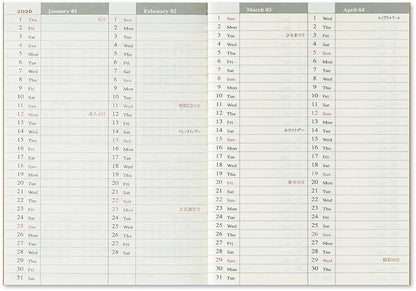 2026 January 01
1 Thu 元日
2 Fri
3 Sat
4 Sun
5 Mon
6 Tue
7 Wed
8 Thu
9 Fri
10 Sat
11 Sun
12 Mon 成人の日
13 Tue
14 Wed
15 Thu
16 Fri
17 Sat
18 Sun
19 Mon
20 Tue
21 Wed
22 Thu
23 Fri
24 Sat
25 Sun
26 Mon
27 Tue
28 Wed
29 Thu
30 Fri
31 Sat
February 02
1 Sun
2 Mon
3 Tue
4 Wed
5 Thu
6 Fri
7 Sat
8 Sun
9 Mon
10 Tue
11 Wed 建国記念の日
12 Thu
13 Fri
14 Sat バレンタインデー
15 Sun
16 Mon
17 Tue
18 Wed
19 Thu
20 Fri
21 Sat
22 Sun
23 Mon 天皇誕生日
24 Tue
25 Wed
26 Thu
27 Fri
28 Sat
March 03
1 Sun
2 Mon
3 Tue ひなまつり
4 Wed
5 Thu
6 Fri
7 Sat
8 Sun
9 Mon
10 Tue
11 Wed
12 Thu
13 Fri
14 Sat ホワイトデー
15 Sun
16 Mon
17 Tue
18 Wed
19 Thu
20 Fri 春分の日
21 Sat
22 Sun
23 Mon
24 Tue
25 Wed
26 Thu
27 Fri
28 Sat
29 Sun
30 Mon
31 Tue
April 04
1 Wed エイプリルフール
2 Thu
3 Fri
4 Sat
5 Sun
6 Mon
7 Tue
8 Wed
9 Thu
10 Fri
11 Sat
12 Sun
13 Mon
14 Tue
15 Wed
16 Thu
17 Fri
18 Sat
19 Sun
20 Mon
21 Tue
22 Wed
23 Thu
24 Fri
25 Sat
26 Sun
27 Mon
28 Tue
29 Wed 昭和の日
30 Thu